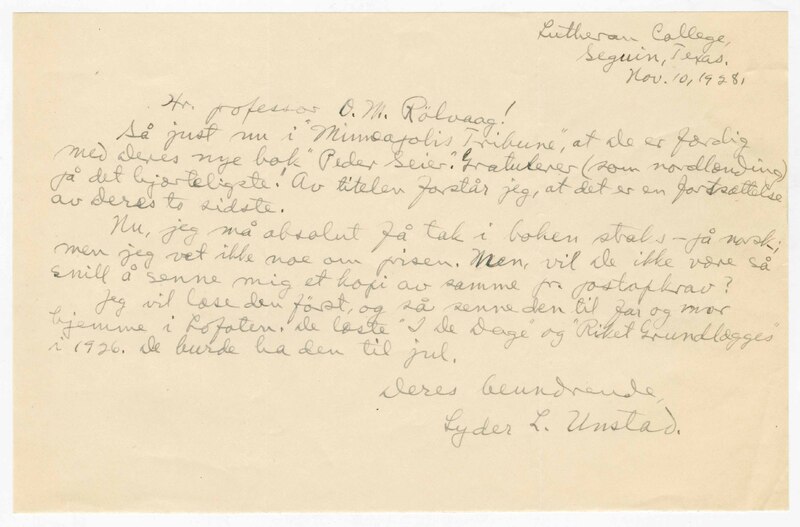 Lutheran College,
Seguin, Texas.
Nov. 10, 1928.
Hr. professor O. M. Rölvaag!
Så just nu i "Minneapolis Tribune", at De er færdig
med Deres nye bok "Peder Seier". Gratulerer (som nordlænding)
på det hjærteligste! Av titelen forstår jeg, at det er en fortsættelse
av Deres to sidste.
Nu, jeg må absolut få tak i boken straks – på norsk;
men jeg vet ikke noe om prisen. Men, vil De ikke være så
snill å senne mig et kopi av samme pr. postopkrav?
Jeg vil læse den först, og så senne den til far og mor
hjemme i Lofoten. De læste "I De Dage" og "Riket Grundlægges"
i 1926. De burde ha den til jul.
Deres beundrende,
Lyder L. Unstad.